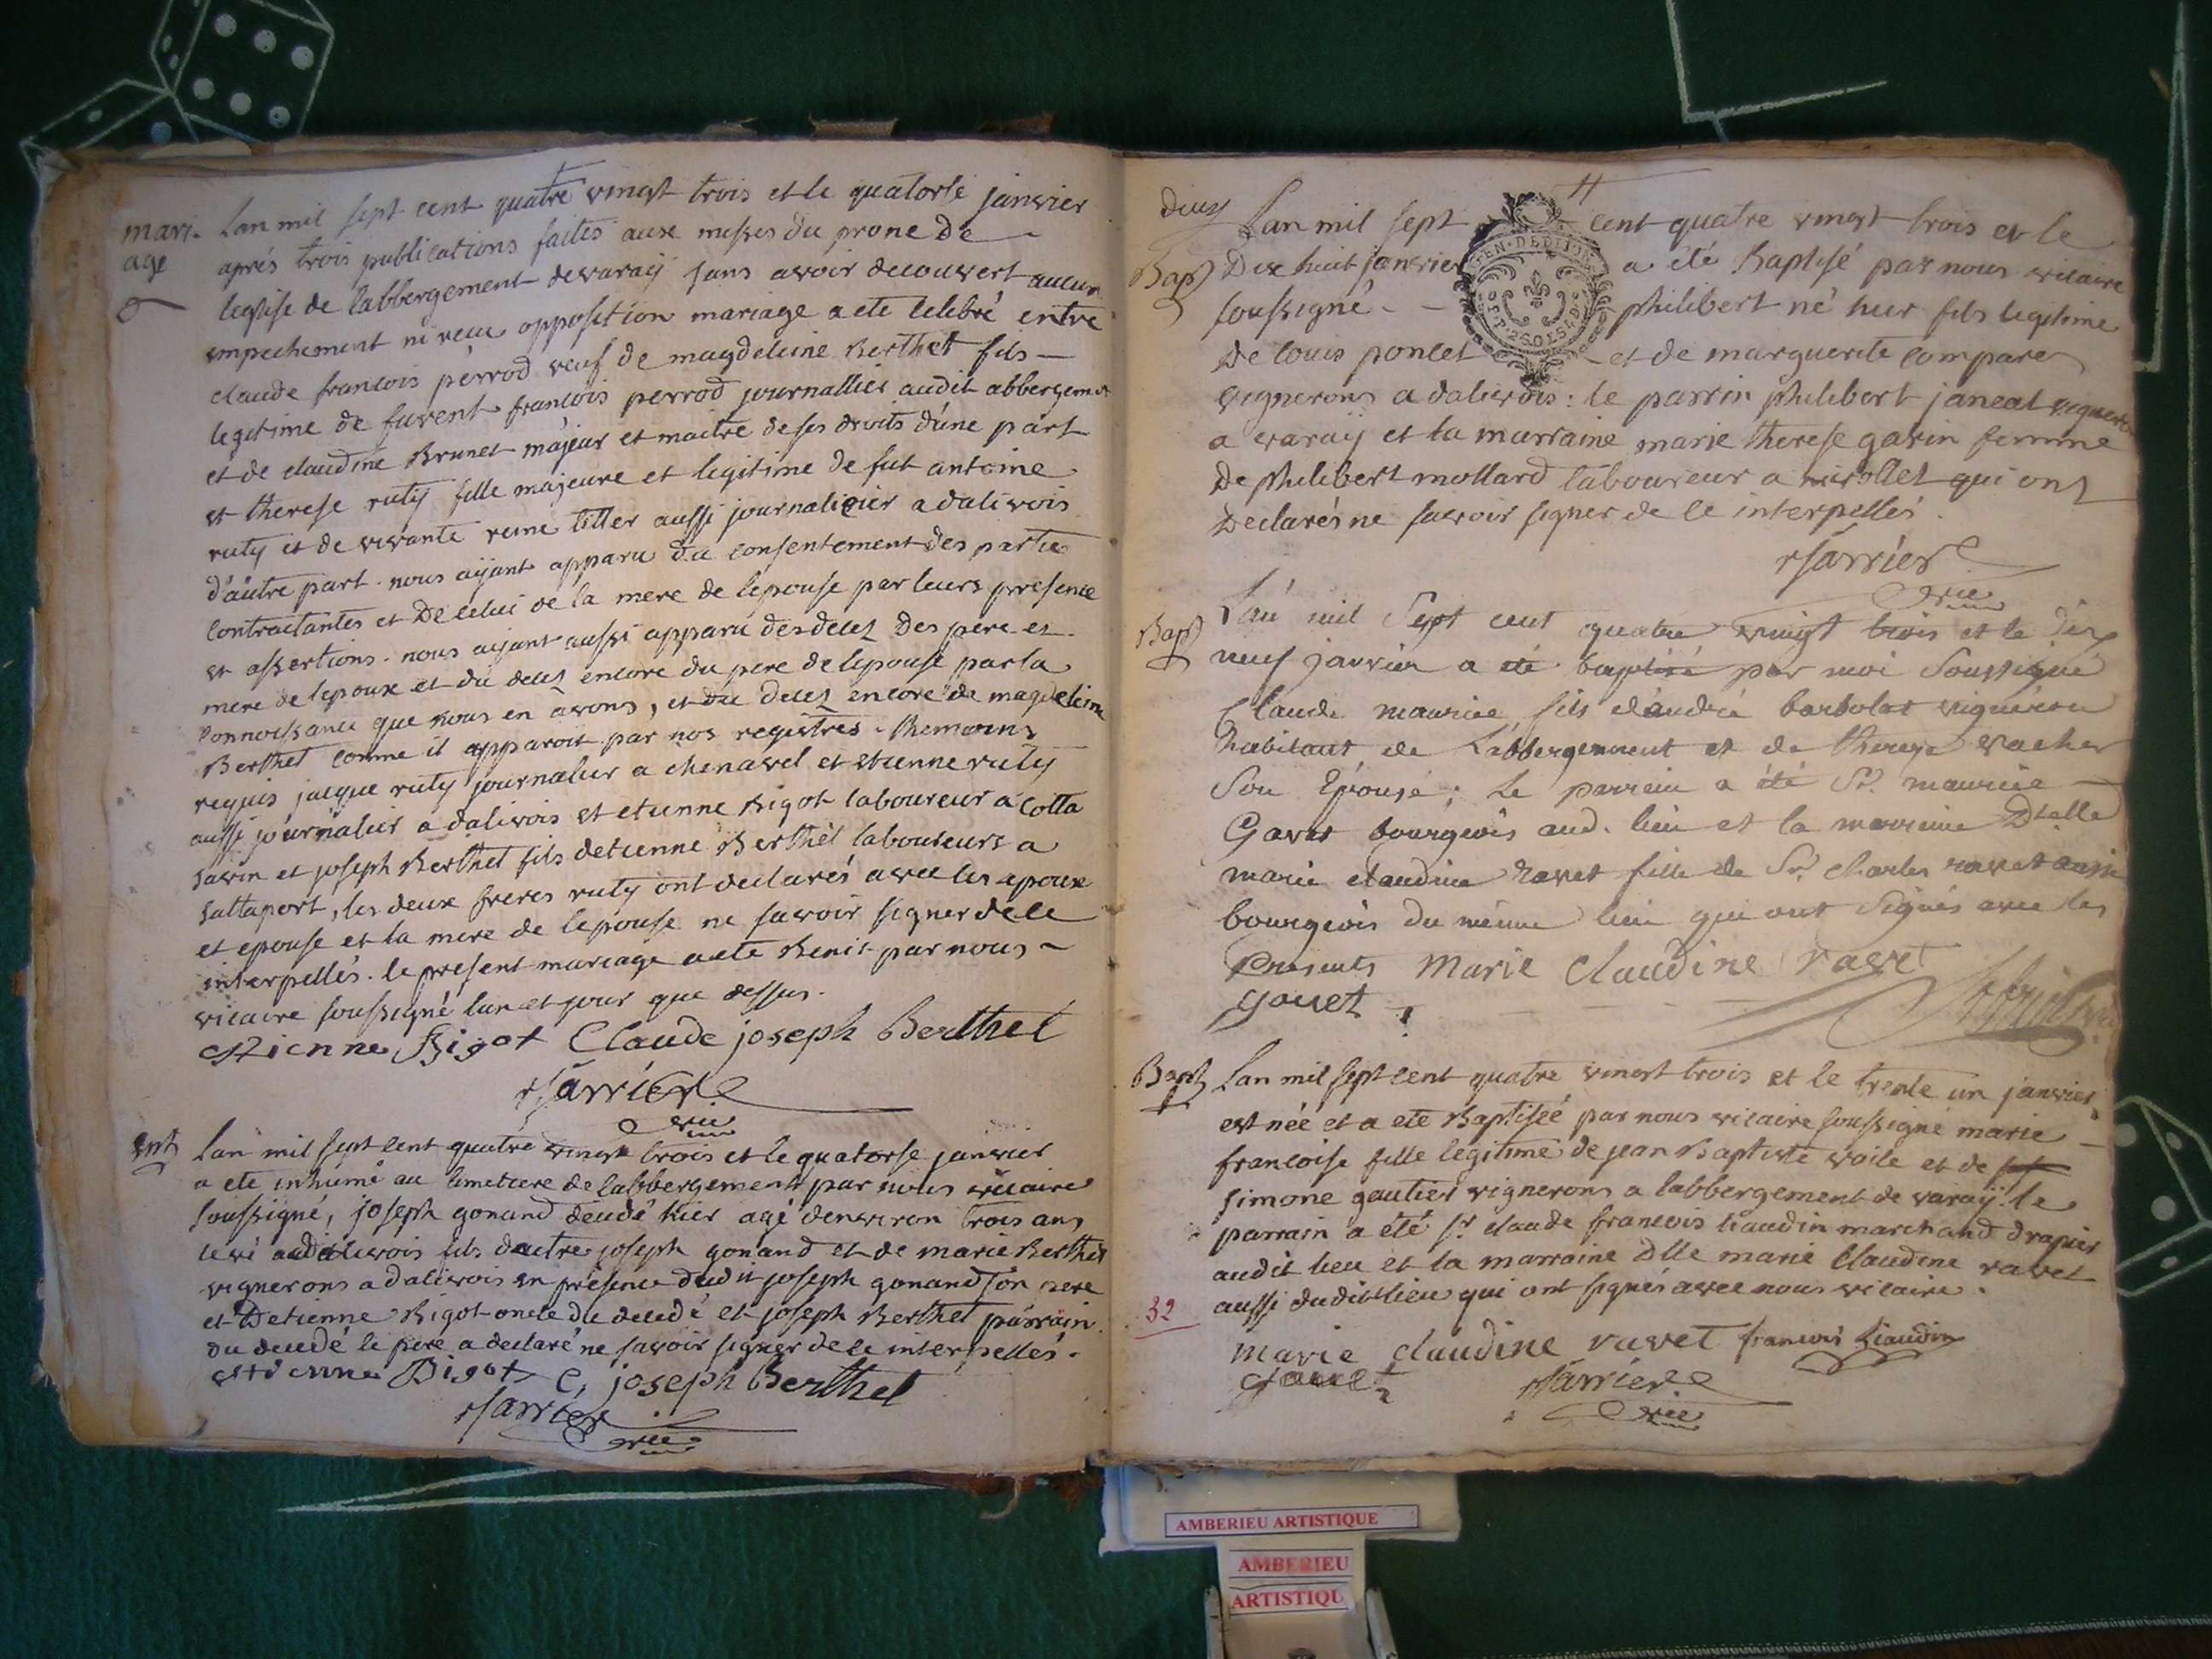 mari-
age
Lan mil sept cent quatre vingt trois et le quatorse janvier
aprés trois publications faites aux messes du prone de
leglise de labbergement devaraÿ sans avoir decouvert aucun
empechement ni reçu opposition mariage a ete celebré entre
claude francois perrod veuf de magdeleine Berthet fils
legitime de francois perrod journallier audit abbergemt
et de claudine Brunet majeur et maitre de ses droits d'une part
et therese ruty fille majeure et legitime de fut antoine
ruty et de vivante reine titler aussi journalieier a dalivois
d'autre part. nous aÿant apparu du consentement des parties
contractantes et De celui de la mere de lepouse par leurs presence
et assertions. nous aiÿant aussi apparu des deces Des pere et
mere de lepoux et du deces encore du pere de lepouse par la
connoissance que nous en avons, et du deces encore de magdeleine
Berthet comme il apparoit par nos registres. themoins
requis jacque ruty journalier a chenavel et etienne ruty
aussi journalier a dalivois et etienne Bigot laboureur a Cotta
savin et joseph Berthet fils detienne Berthet laboureurs a
sattaport, les deux freres ruty ont declarés avec les epoux
et epouse et la mere de lepouse ne savoir signer de ce
interpellés. le present mariage a ete Benit par nous
vicaire soussigné lan et jour que dessus.
estienne Bigot Claude joseph Berthet
Sarrier
vic
ent
Lan mil sept cent quatre vingt trois et le quatorse janvier
a ete inhumé au cimetiere de labbergement par nous vicaire
soussigné, joseph gonand decedé hier agé denviron trois ans
fils dautre joseph gonand et de marie Berthet
vignerons a dalivois en presence dudit joseph gonand son pere
et Detienne Bigot oncle du decedé et joseph Berthet parrain
du decedé le pere a declaré ne savoir signer de ce interpellés.
estienne Bigot C, joseph Berthet
Sarrier
vic
deux
Bapt
Lan mil sept cent quatre vingt trois et le
EN. DEDITION
Dix huit janvier a été Baptisé par nous vicaire
soussigné - - philibert né hier fils legitime
De louis poncet et de marguerite compare
vignerons a dalivois: le parrin philibert janeat vigneron
a varaÿ et la marraine marie therese gavin femme
De philibert mollard laboureur a mirollet qui ont
Declarés ne savoir signer de ce interpellés.
Sarrier
vic
Bapt
L'an mil Sept cent quatre vingt trois et le dix
neuf janvier a été baptisé par moi Soussigné
Claude maurice fils d'andré barbolat vigneron
habitant de Labbergement et de therese vacher
Son Epouse; Le parrein a été Sr. maurice
Gavet bourgeois aud. lieu et la marreine Dlle
marie claudine ravet fille de Sr. charles ravet aussi
bourgeois du même lieu qui ont Signés avec les
Présents Marie Claudine ravet
gavet
Bapt
Lan mil sept cent quatre vingt trois et le trente un janvier
est née et a eté Baptisée par nous vicaire soussigné marie
francoise fille legitime de jean Baptiste voile et de
simone gautier vignerons a labbergement de varaÿ. le
parrain a été sr. claude francois liaudin marchand drapier
audit lieu et la marraine Dlle marie Claudine ravet
aussi dudit lieu qui ont signés avec nous vicaire.
32
marie claudine ravet francois Liaudin
gavet
Sarrier
vic
AMBERIEU ARTISTIQUE
AMBERIEU
ARTISTIQU